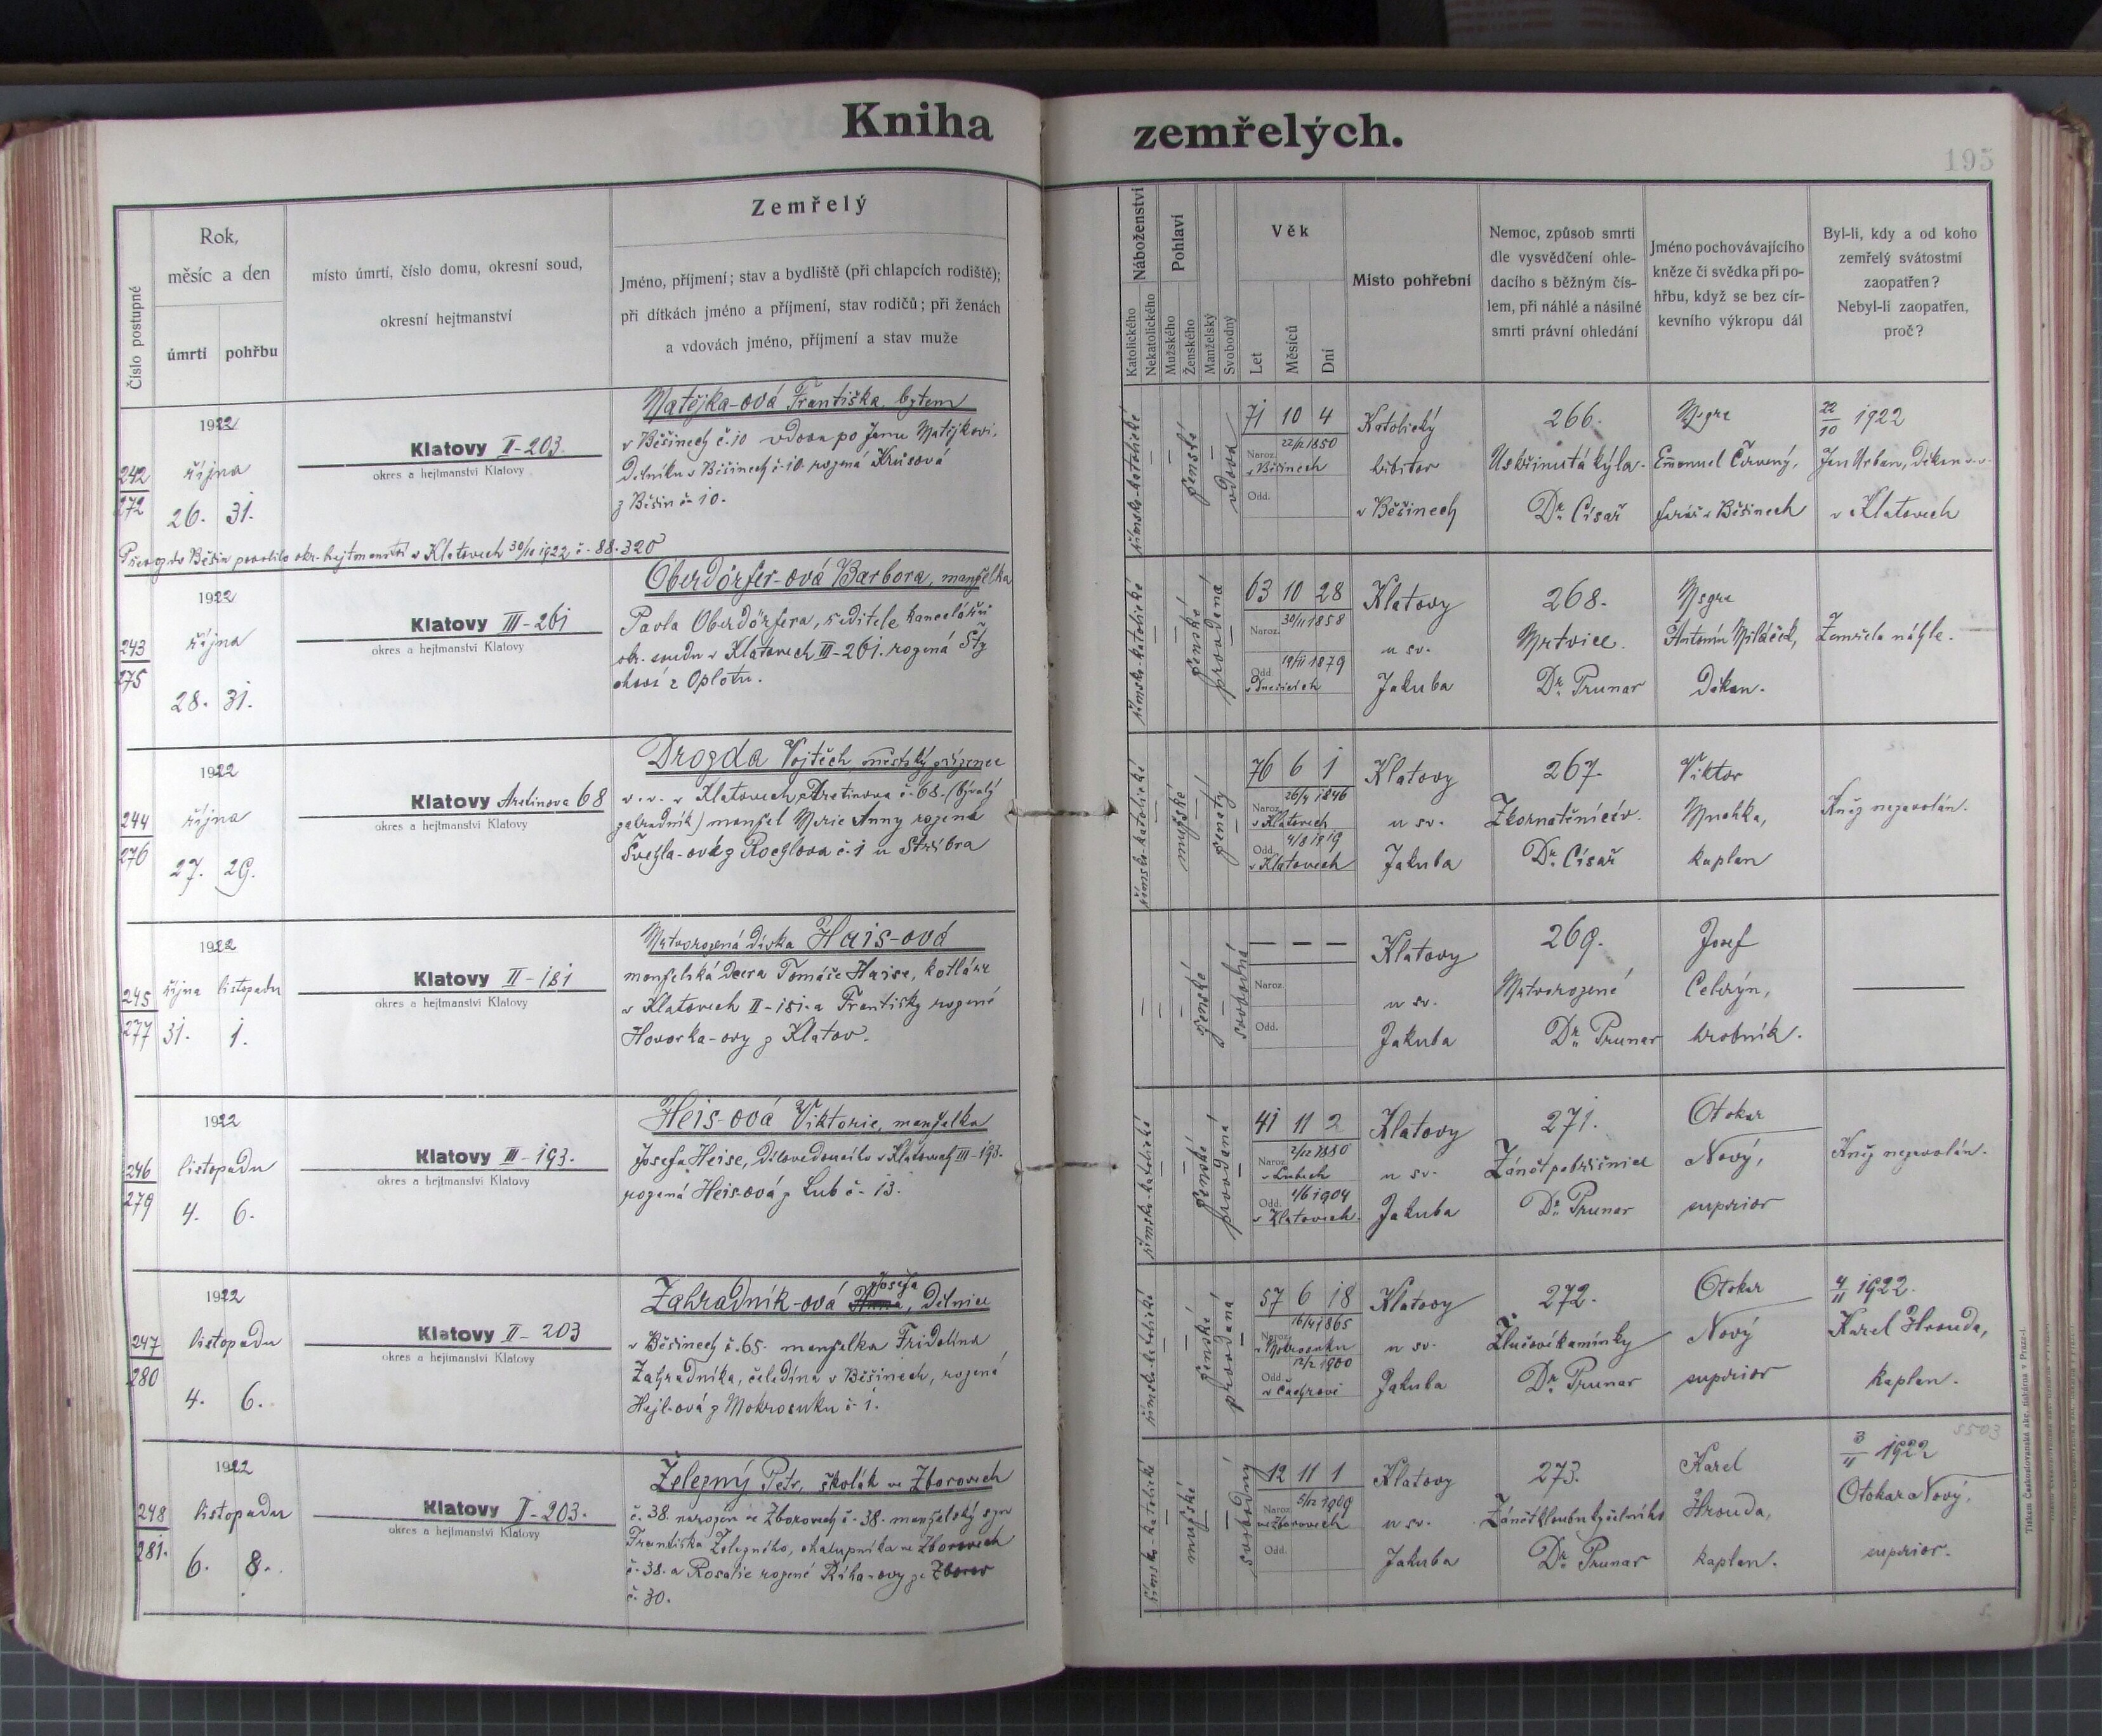 Kniha zemřelých.
195
Číslo postupné
Rok,
měsíc a den
úmrtí
pohřbu
místo úmrtí, číslo domu, okresní soud,
okresní hejtmanství
Zemřelý
Jméno, příjmení; stav a bydliště (při chlapcích rodiště);
při dítkách jméno a příjmení, stav rodičů; při ženách
a vdovách jméno, příjmení a stav muže
Náboženství
Katolického
Nekatolického
Pohlaví
Mužského
Ženského
Manželský
Svobodný
Věk
Let
Měsíců
Dní
Místo pohřební
Nemoc, způsob smrti
dle vysvědčení ohle-
dacího s běžným čís-
lem, při náhlé a násilné
smrti právní ohledání
Jméno pochovávajícího
kněze či svědka při po-
hřbu, když se bez cír-
kevního výkropu dál
Byl-li, kdy a od koho
zemřelý svátostmi
zaopatřen?
Nebyl-li zaopatřen,
proč?
242
272
1922
října
26. 31.
Klatovy II-203.
okres a hejtmanství Klatovy
Matějka-ová Františka, bytem
v Běšinech č. 10 vdova po Janu Matějkovi,
dělníku v Běšinech č. 10. rozená Krůsová
z Běšin č. 10.
Převoz do Běšin povolilo okr. hejtmanství v Klatovech 30/10 1922 č. 88.320
římsko-katolické
ženské
vdova
71 10 4
Naroz. 22/12 1850
v Běšinech
Odd.
Katolický
hřbitov
v Běšinech
266.
Uskřinutá kýla.
Dr. Císař
Msgre
Emanuel Červený,
farář v Běšinech
22/10 1922
Jan Urban, děkan v. v.
v Klatovech
243
275
1922
října
28. 31.
Klatovy III-261
okres a hejtmanství Klatovy
Oberdörfer-ová Barbora, manželka
Pavla Oberdörfera, ředitele kanceláří
okr. soudu v Klatovech III-261. rozená
z Oplotu.
římsko-katolické
ženské
provdaná
63 10 28
Naroz. 30/11 1858
Odd. 1879
Klatovy
u sv.
Jakuba
268.
Mrtvice.
Dr. Prunar
Msgre
Antonín Miláček,
děkan.
Zemřela náhle.
244
276
1922
října
27. 29.
Klatovy Aretinova 68
okres a hejtmanství Klatovy
Drozda Vojtěch, městský zřízenec
v. v. v Klatovech, Aretinova č. 68. (bývalý
zahradník) manžel Marie Anny rozená
Švehla-ové z č. 1 u Stříbra
římsko-katolické
mužské
ženatý
76 6 1
Naroz. 26/4 1846
v Klatovech
Odd.
v Klatovech
Klatovy
u sv.
Jakuba
267.
Zkornatění cév.
Dr. Císař
Viktor
Muchka,
kaplan
Kněz nezavolán.
245
277
1922
října listopadu
31. 1.
Klatovy II-181
okres a hejtmanství Klatovy
Mrtvorozená dívka Hais-ová
manželská dcera Tomáše Haise, kotláře
v Klatovech II-181. a Františky rozené
Hovorka-ovy z Klatov.
ženské
svobodná
Naroz.
Odd.
Klatovy
u sv.
Jakuba
269.
Mrtvorozené
Dr. Prunar
Josef
Celerýn,
hrobník.
246
279
1922
listopadu
4. 6.
Klatovy III-193.
okres a hejtmanství Klatovy
Heis-ová Viktorie, manželka
Josefa Heise, dílovedoucího v Klatovech III-193.
rozená Heis-ová z Lub č. 13.
římsko-katolické
ženské
provdaná
41 11 2
Naroz. 2/12 1880
v Lubech
Odd. 4/6 1904
v Klatovech.
Klatovy
u sv.
Jakuba
271.
Zánět pobřišnice
Dr. Prunar
Otokar
Nový,
superior
Kněz nezavolán.
247
280
1922
listopadu
4. 6.
Klatovy II-203
okres a hejtmanství Klatovy
Zahradník-ová Josefa, dělnice
v Běšinech č. 65. manželka Fridolína
Zahradníka, čeledína v Běšinech, rozená
Hejl-ová z Mokrosuku č. 1.
římsko-katolické
ženské
provdaná
57 6 18
Naroz. 16/4 1865
v Mokrosuku
12/2 1900
Odd.
v Čachrově
Klatovy
u sv.
Jakuba
272.
Žlučové kamínky
Dr. Prunar
Otokar
Nový
superior
4/11 1922.
Karel Hrouda,
kaplan.
248
281.
1922
listopadu
6. 8.
Klatovy II-203.
okres a hejtmanství Klatovy
Železný Petr, školák ve Zborovech
č. 38. narozen ve Zborovech č. 38. manželský syn
Františka Železného, chalupníka ve Zborovech
č. 38. a Rosalie rozené Říha-ovy ze Zborov
č. 30.
římsko-katolické
mužské
svobodný
12 11 1
Naroz. 5/12 1909
ve Zborovech
Odd.
Klatovy
u sv.
Jakuba
273.
Zánět kloubu kyčelního
Dr. Prunar
Karel
Hrouda,
kaplan.
5503
3/11 1922
Otokar Nový,
superior.
Tiskem Českoslovanské akc. tiskárny v Praze-I.